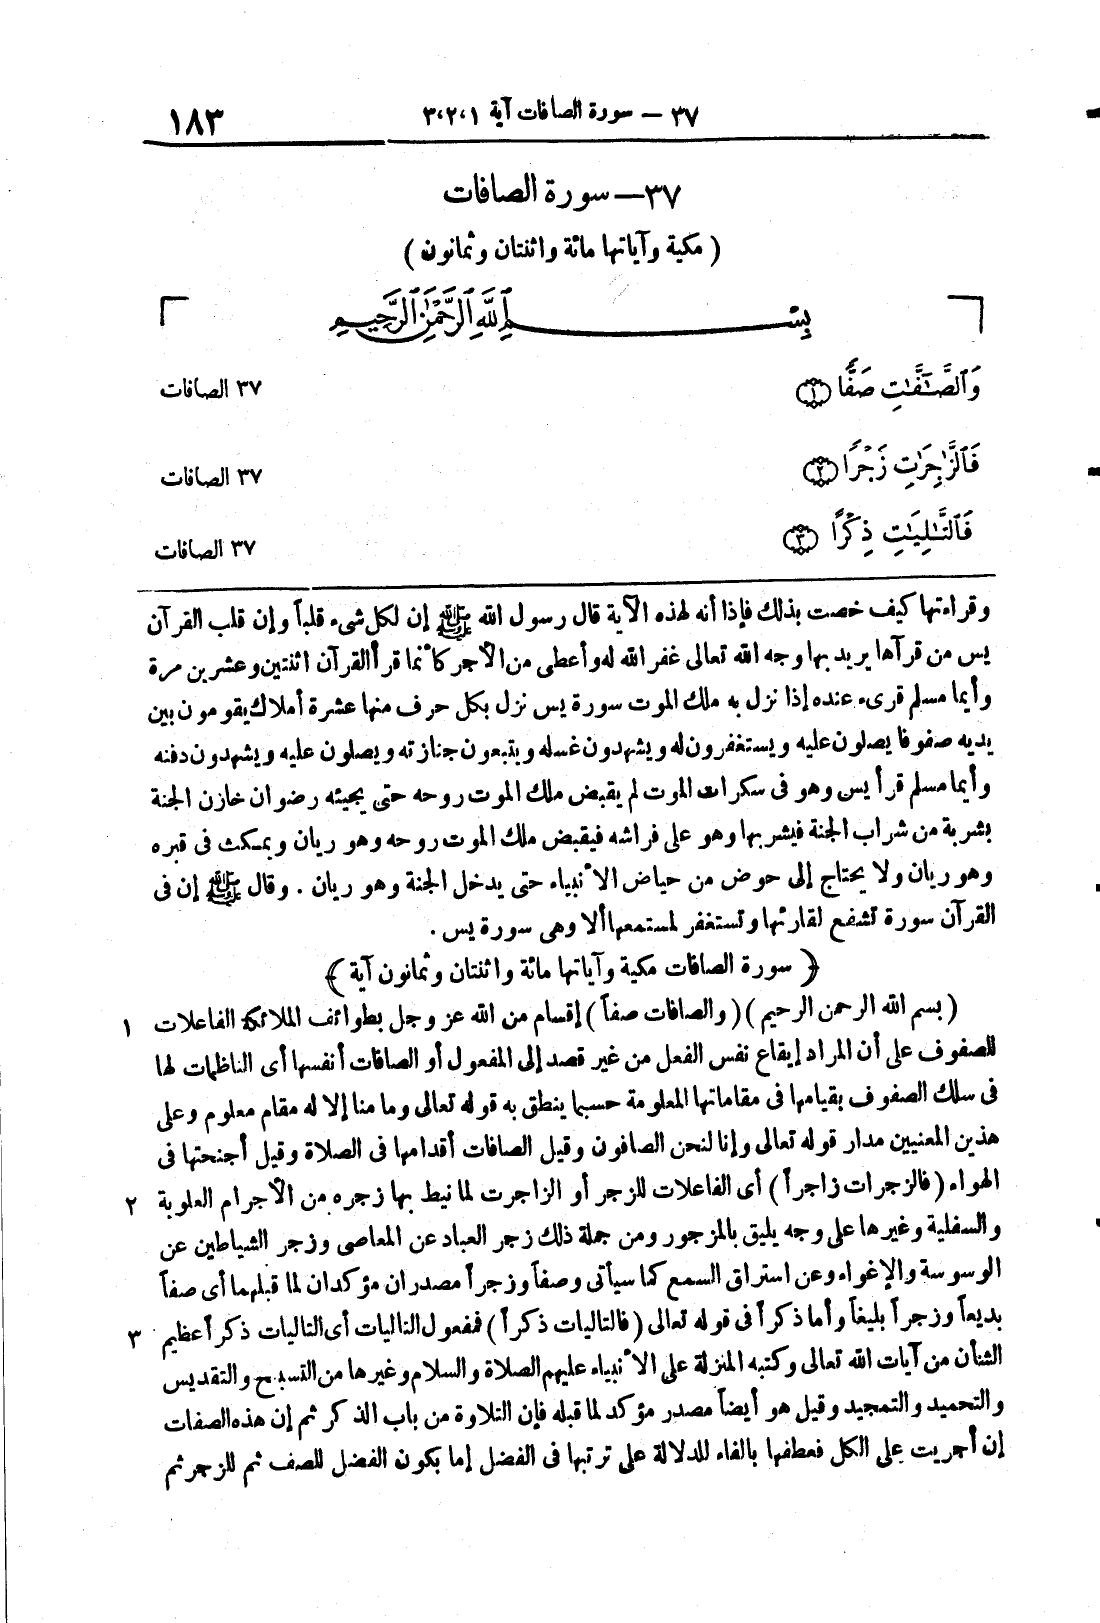 ٣٧ – سورة الصافات آية ١، ٢، ٣ ١٨٣
٣٧ – سورة الصافات
( مكية وآياتها مائة واثنتان وثمانون )
بِسْمِ ٱللَّهِ ٱلرَّحْمَٰنِ ٱلرَّحِيمِ
وَٱلصَّٰٓفَّٰتِ صَفًّا ١ ٣٧ الصافات
فَٱلزَّٰجِرَٰتِ زَجْرًا ٢ ٣٧ الصافات
فَٱلتَّٰلِيَٰتِ ذِكْرًا ٣ ٣٧ الصافات
وقراءتها كيف خصت بذلك فإذا أنه لهذه الآية قال رسول الله ﷺ إن لكل شىء قلباً وإن قلب القرآن
يس من قرأها يريد بها وجه الله تعالى غفر الله له وأعطى من الأجر كأنما قرأ القرآن اثنتين وعشرين مرة
وأيما مسلم قرىء عنده إذا نزل به ملك الموت سورة يس نزل بكل حرف منها عشرة أملاك يقومون بين
يديه صفوفا يصلون عليه ويستغفرون له ويشهدون غسله ويتبعون جنازته ويصلون عليه ويشهدون دفنه
وأيما مسلم قرأ يس وهو فى سكرات الموت لم يقبض ملك الموت روحه حتى يجيئه رضوان خازن الجنة
بشربة من شراب الجنة فيشربها وهو على فراشه فيقبض ملك الموت روحه وهو ريان ويمكث فى قبره
وهو ريان ولا يحتاج إلى حوض من حياض الأنبياء حتى يدخل الجنة وهو ريان . وقال ﷺ إن فى
القرآن سورة تشفع لقارئها وتستغفر لمستمعها ألا وهى سورة يس .
﴿ سورة الصافات مكية وآياتها مائة واثنتان وثمانون آية ﴾
( بسم الله الرحمن الرحيم ) ( والصافات صفاً ) إقسام من الله عز وجل بطوائف الملائكة الفاعلات ١
للصفوف على أن المراد إيقاع نفس الفعل من غير قصد إلى المفعول أو الصافات أنفسها أى الناظمات لها
فى سلك الصفوف بقيامها فى مقاماتها المعلومة حسبما ينطق به قوله تعالى وما منا إلا له مقام معلوم وعلى
هذين المعنيين مدار قوله تعالى وإنا لنحن الصافون وقيل الصافات أقدامها فى الصلاة وقيل أجنحتها فى
الهواء ( فالزجرات زاجراً ) أى الفاعلات للزجر أو الزاجرت لما نيط بها زجره من الأجرام العلوية ٢
والسفلية وغيرها على وجه يليق بالمزجور ومن جملة ذلك زجر العباد عن المعاصى وزجر الشياطين عن
الوسوسة والإغواء وعن استراق السمع كما سيأتى وصفاً وزجراً مصدران مؤكدان لما قبلهما أى صفاً
بديعاً وزجراً بليغاً وأما ذكراً فى قوله تعالى ( فالتاليات ذكراً ) فمفعول التاليات أى التاليات ذكراً عظيم ٣
الشأن من آيات الله تعالى وكتبه المنزلة على الأنبياء عليهم الصلاة والسلام وغيرها من التسبيح والتقديس
والتحميد والتمجيد وقيل هو أيضاً مصدر مؤكد لما قبله فإن التلاوة من باب الذكر ثم إن هذه الصفات
إن أجريت على الكل فعطفها بالفاء للدلالة على ترتبها فى الفضل إما بكون الفضل للصف ثم للزجر ثم